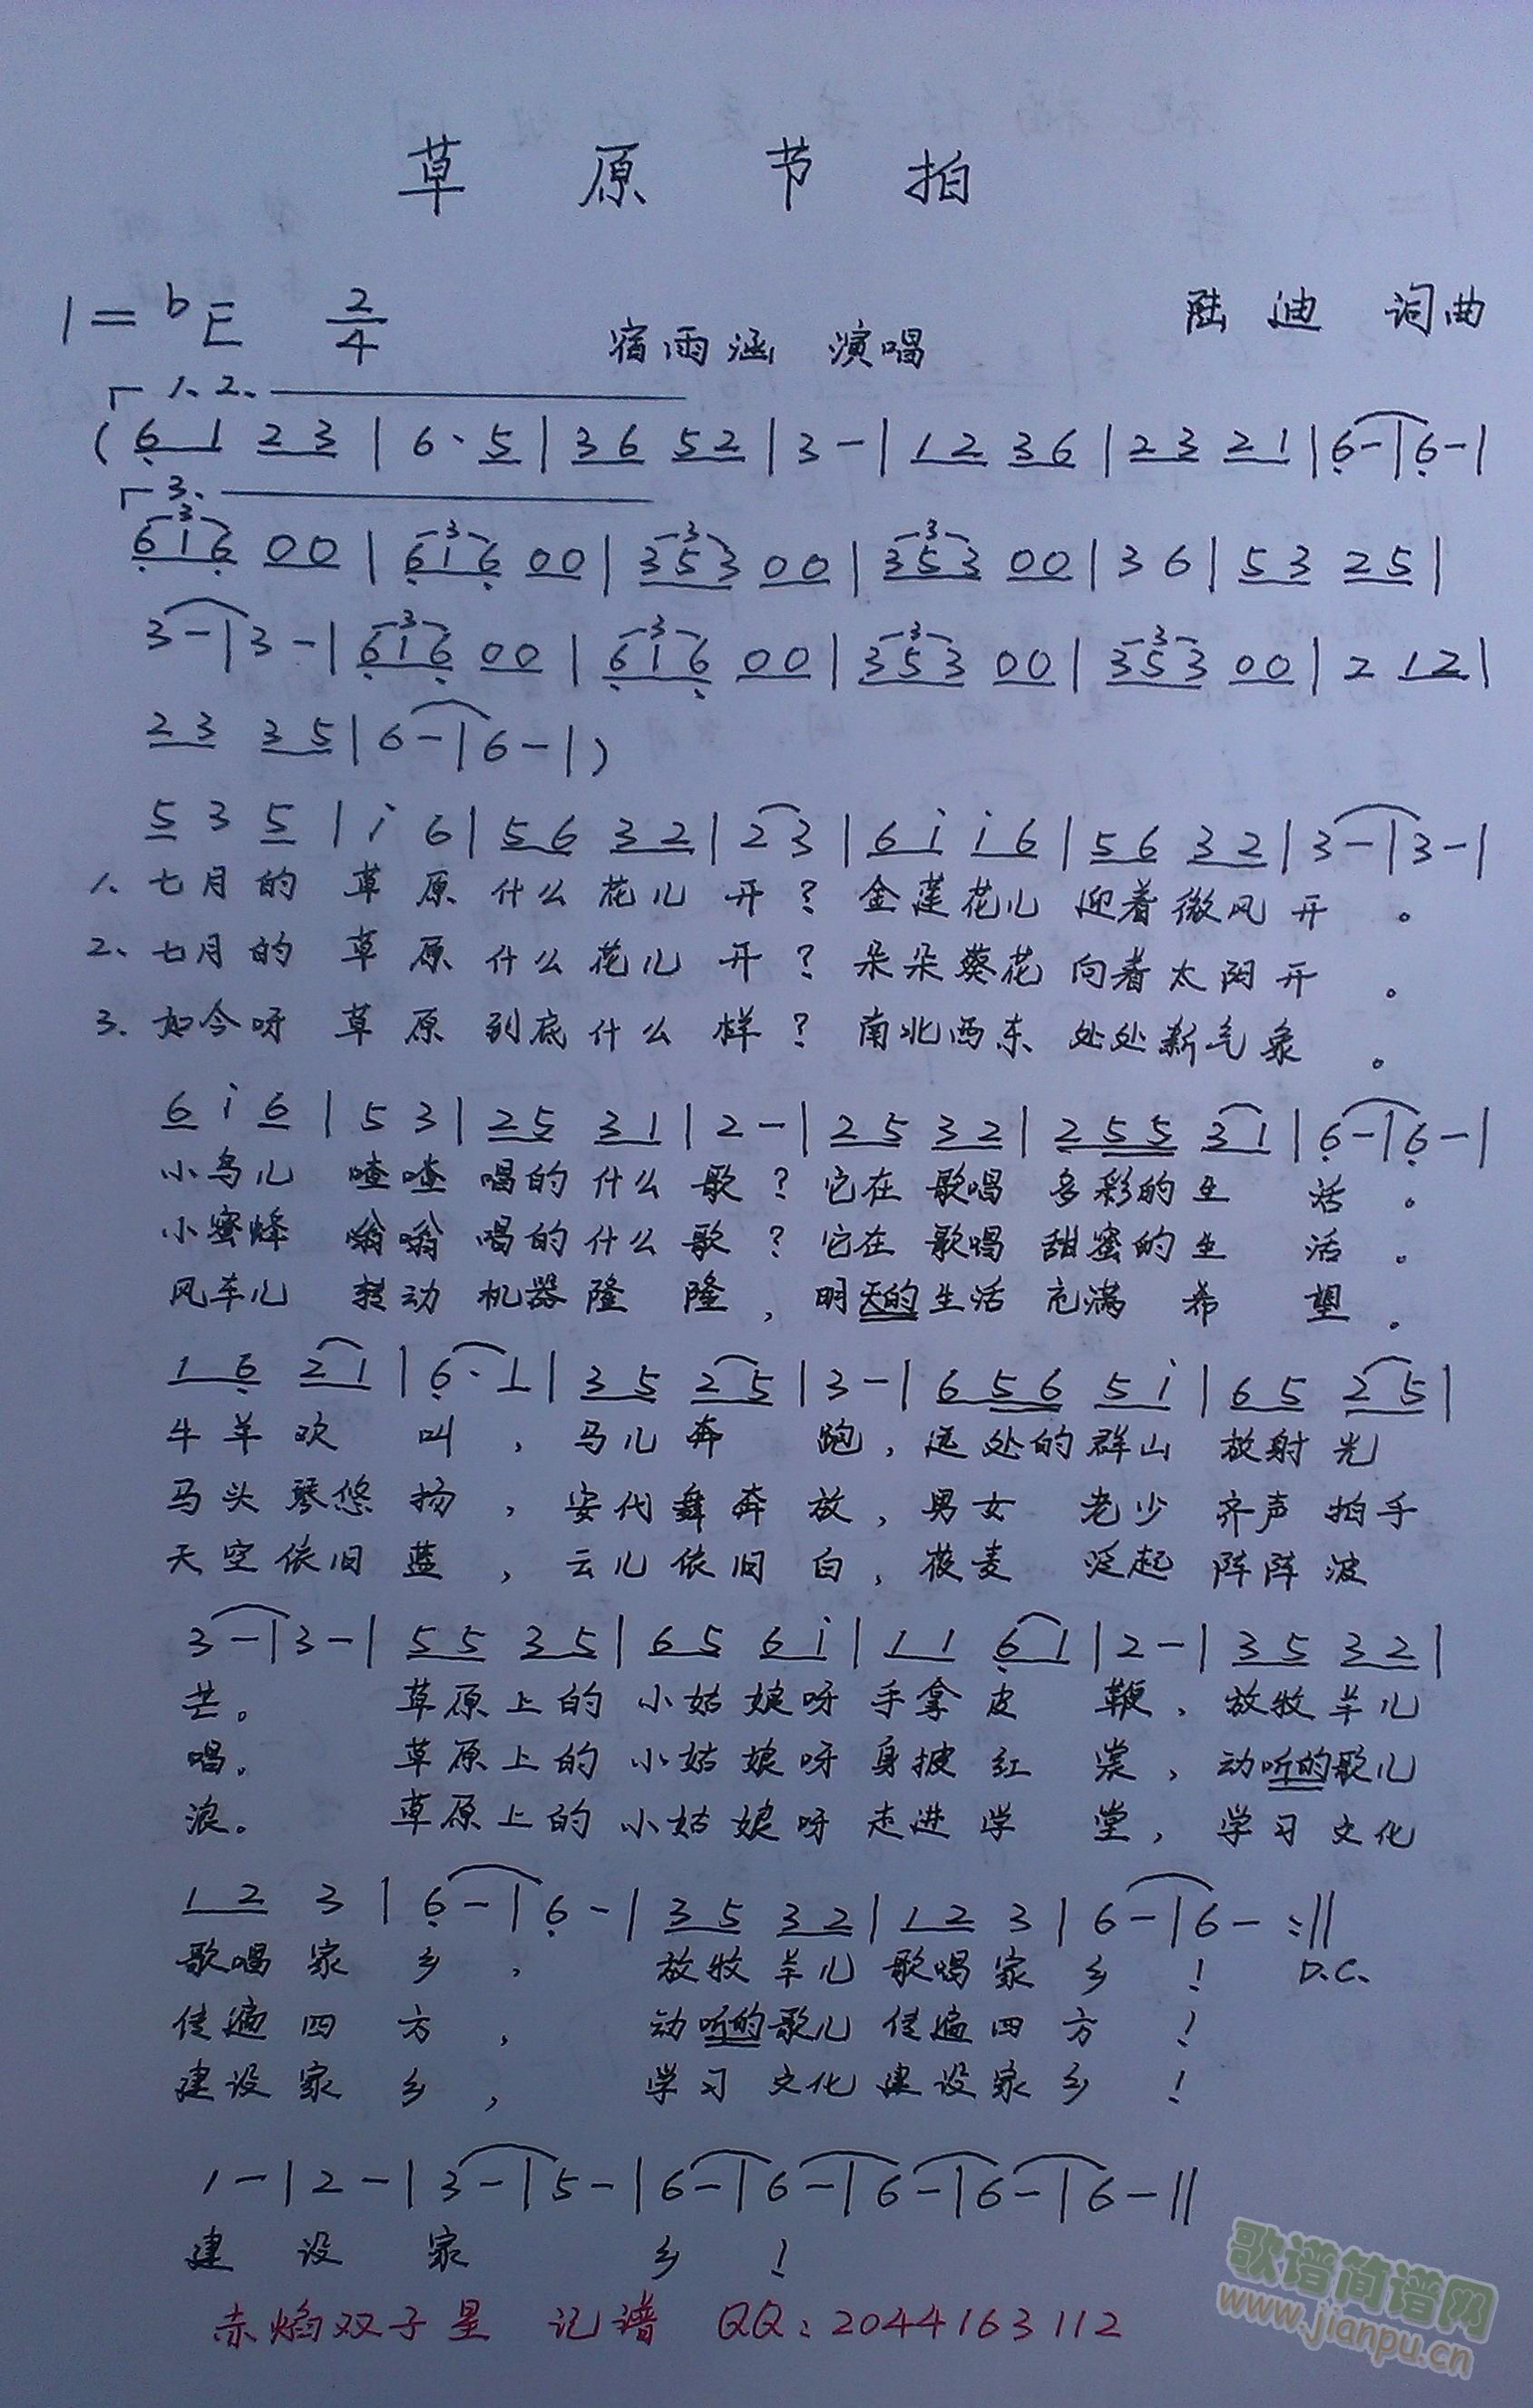 草原节拍
1=bE 2/4 宿雨涵 演唱 陆迪 词曲
1、2、
(6 1 2 3 | 6· 5 | 3 6 5 2 | 3 - | 1 2 3 6 | 2 3 2 1 | 6 - | 6 - |
3、
3 3 3 3
6 1 6 0 0 | 6 1 6 0 0 | 3 5 3 0 0 | 3 5 3 0 0 | 3 6 | 5 3 2 5 |
3 3 3 3
3 - | 3 - | 6 1 6 0 0 | 6 1 6 0 0 | 3 5 3 0 0 | 3 5 3 0 0 | 2 1 2 |
2 3 3 5 | 6 - | 6 - | )
5 3 5 | i 6 | 5 6 3 2 | 2 3 | 6 i i 6 | 5 6 3 2 | 3 - | 3 - |
1、七月的 草原 什么花儿 开? 金莲花儿 迎着微风开。
2、七月的 草原 什么花儿 开? 朵朵葵花 向着太阳开。
3、如今呀 草原 到底什么 样? 南北西东 处处新气象。
6 i 6 | 5 3 | 2 5 3 1 | 2 - | 2 5 3 2 | 2 5 5 3 1 | 6 - | 6 - |
小鸟儿 喳喳 唱的什么 歌? 它在 歌唱 多彩的生 活。
小蜜蜂 嗡嗡 唱的什么 歌? 它在 歌唱 甜蜜的生 活。
风车儿 转动 机器隆 隆, 明天的生活 充满 希 望。
1 6 2 1 | 6· 1 | 3 5 2 5 | 3 - | 6 5 6 5 i | 6 5 2 5 |
牛羊欢 叫, 马儿奔 跑, 远处的群山 放射光
马头琴悠 扬, 安代舞奔 放, 男女 老少 齐声 拍手
天空依旧 蓝, 云儿依旧 白, 莜麦 泛起 阵阵 波
3 - | 3 - | 5 5 3 5 | 6 5 6 i | 1 1 6 1 | 2 - | 3 5 3 2 |
芒。 草原上的 小姑娘呀 手拿皮 鞭, 放牧羊儿
唱。 草原上的 小姑娘呀 身披红 裳, 动听的歌儿
浪。 草原上的 小姑娘呀 走进学 堂, 学习文化
1 2 3 | 6 - | 6 - | 3 5 3 2 | 1 2 3 | 6 - | 6 - :||
歌唱家 乡, 放牧羊儿 歌唱家 乡! D.C.
传遍四 方, 动听的歌儿 传遍四 方!
建设家 乡, 学习文化 建设家乡!
1 - | 2 - | 3 - | 5 - | 6 - | 6 - | 6 - | 6 - | 6 - ||
建 设 家 乡!
赤焰双子星 记谱 QQ:2044163112
歌谱简谱网
www.jianpu.cn